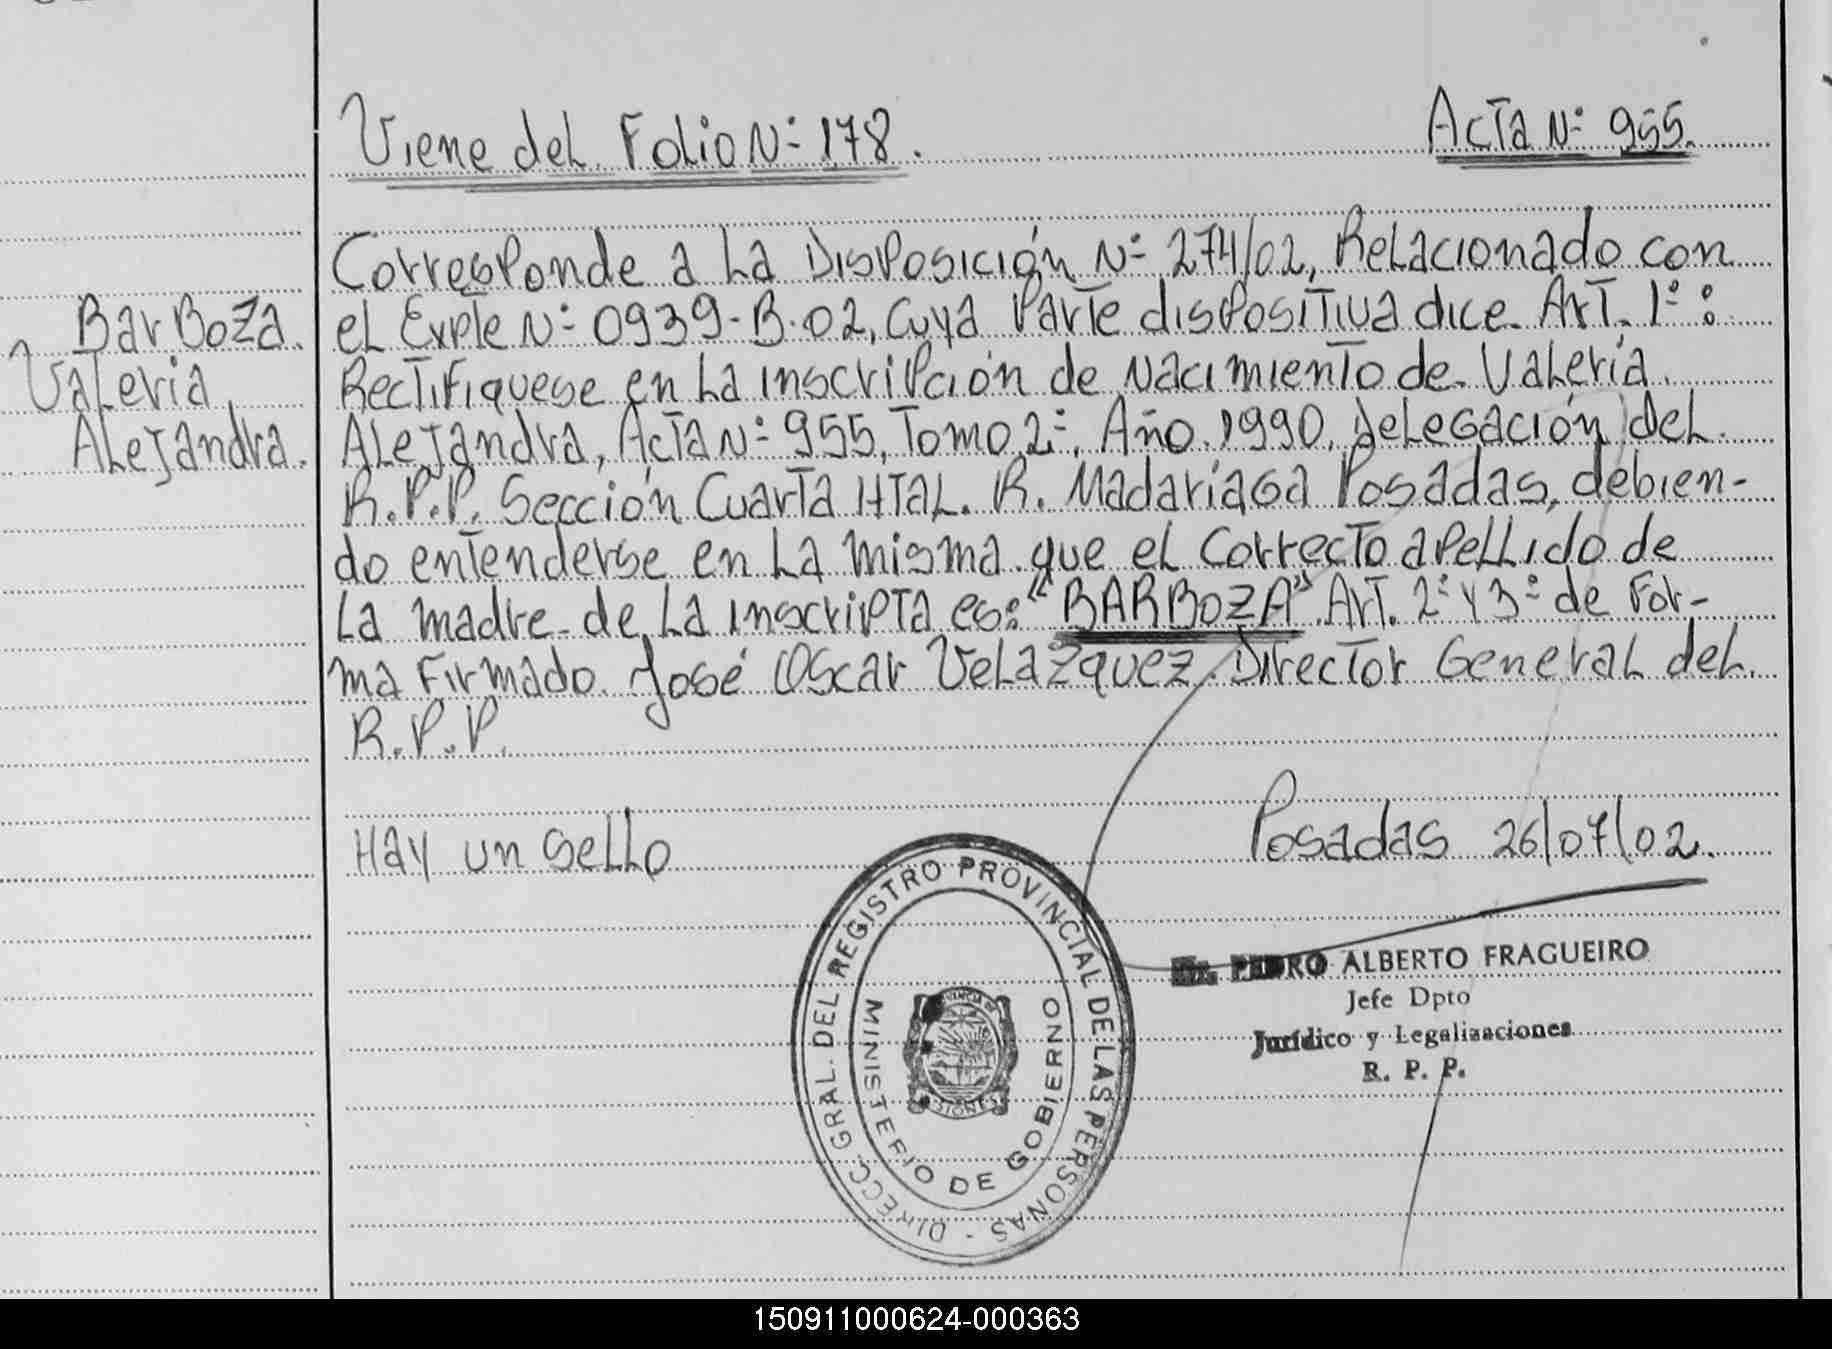 Viene del Folio Nº 178.
Acta Nº 955.
Barboza
Valeria
Alejandra.
Corresponde a la Disposición Nº 274/02, Relacionado con
el Expte Nº 0939-B-02, Cuya Parte dispositiva dice. Art. 1º:
Rectifiquese en la inscripción de Nacimiento de Valeria
Alejandra, Acta Nº 955, Tomo 2º, Año 1990, Delegación del
R.P.P. Sección Cuarta Htal. R. Madariaga Posadas, debien-
do entenderse en la misma que el Correcto apellido de
la madre de la inscripta es: "BARBOZA" Art. 2º y 3º de for-
ma Firmado José Oscar Velazquez Director General del
R.P.P.
Hay un sello
Posadas 26/07/02.
DIRECC. GRAL. DEL REGISTRO PROVINCIAL DE LAS PERSONAS -
MINISTERIO DE GOBIERNO
PROVINCIA DE
MISIONES
Dr. PEDRO ALBERTO FRAGUEIRO
Jefe Dpto
Jurídico y Legalizaciones
R. P. P.
150911000624-000363